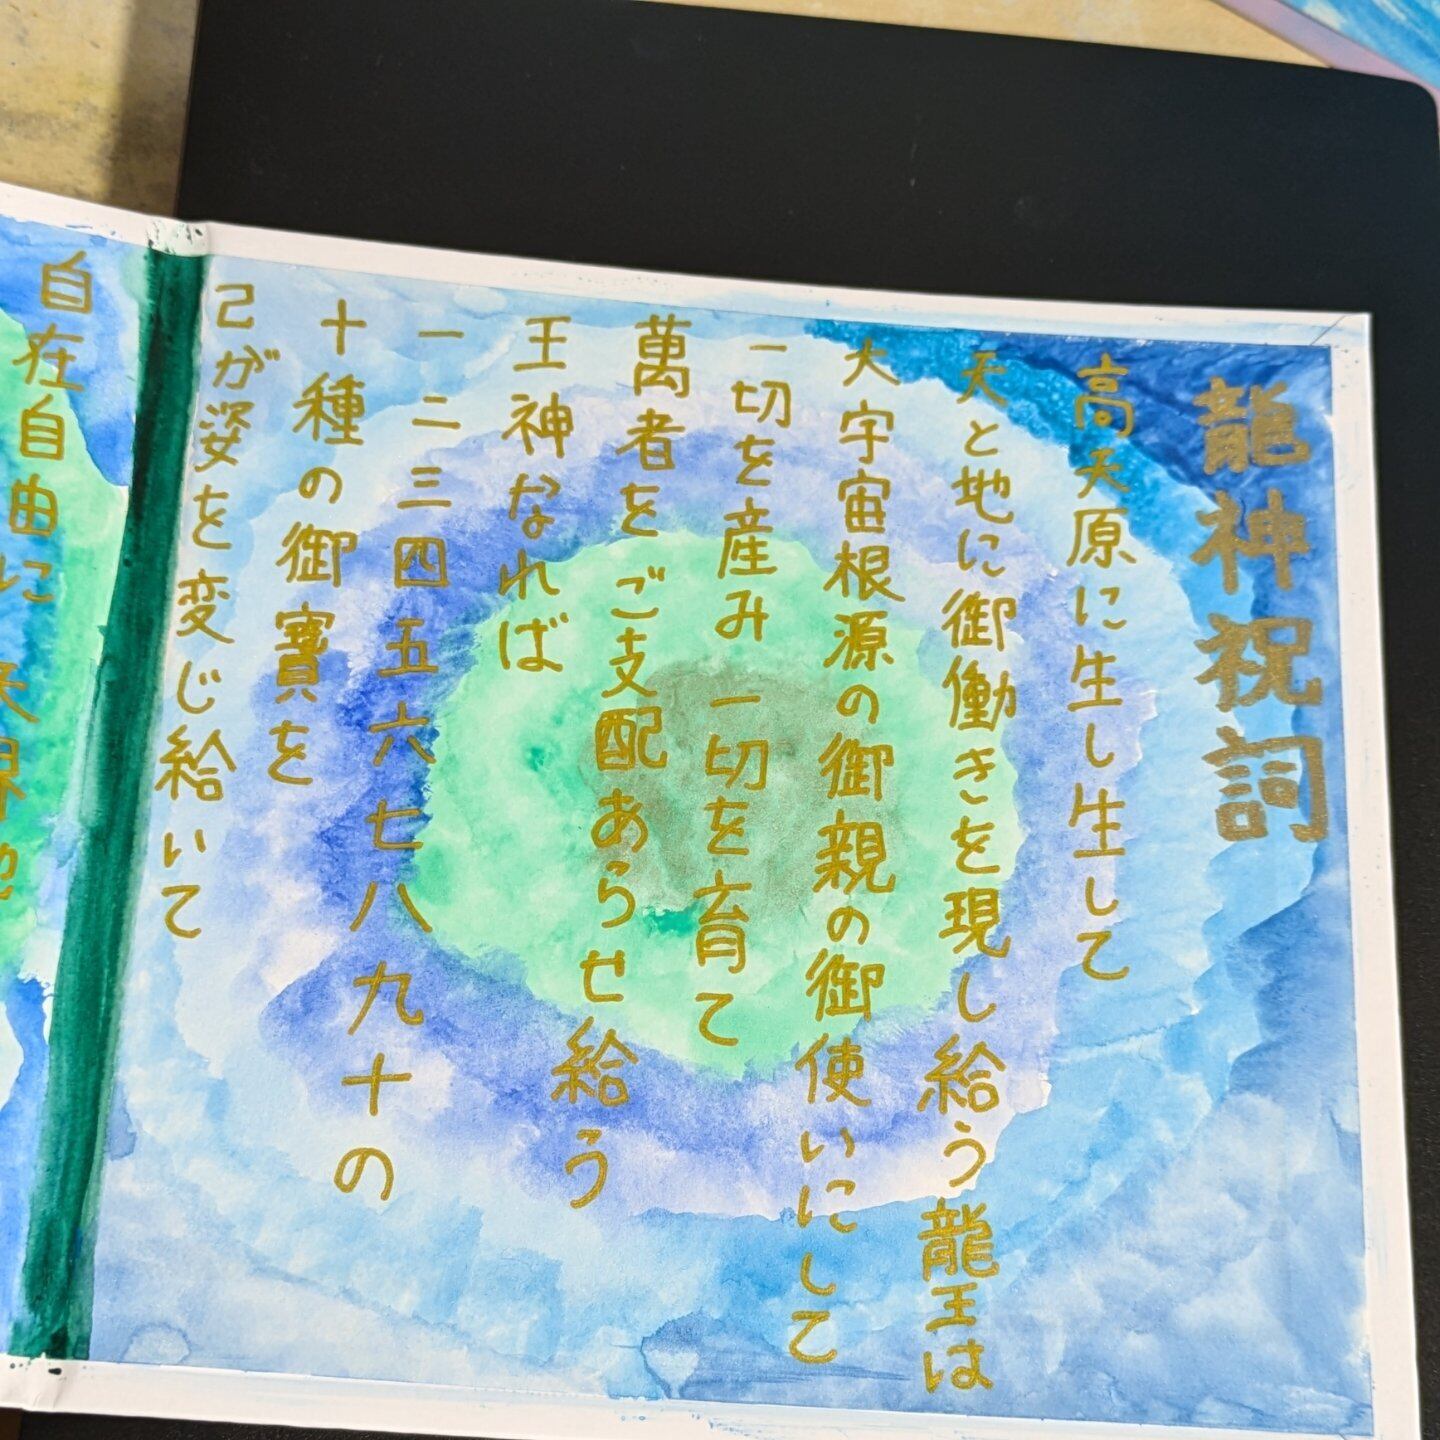 龍神祝詞
高天原に生し生して
天と地に御働きを現し給う龍王は
大宇宙根源の御親の御使いにして
一切を産み 一切を育て
萬者をご支配あらせ給う
王神なれば
一二三四五六七八九十の
十種の御寶を
己が姿を変じ給いて
自在自由に